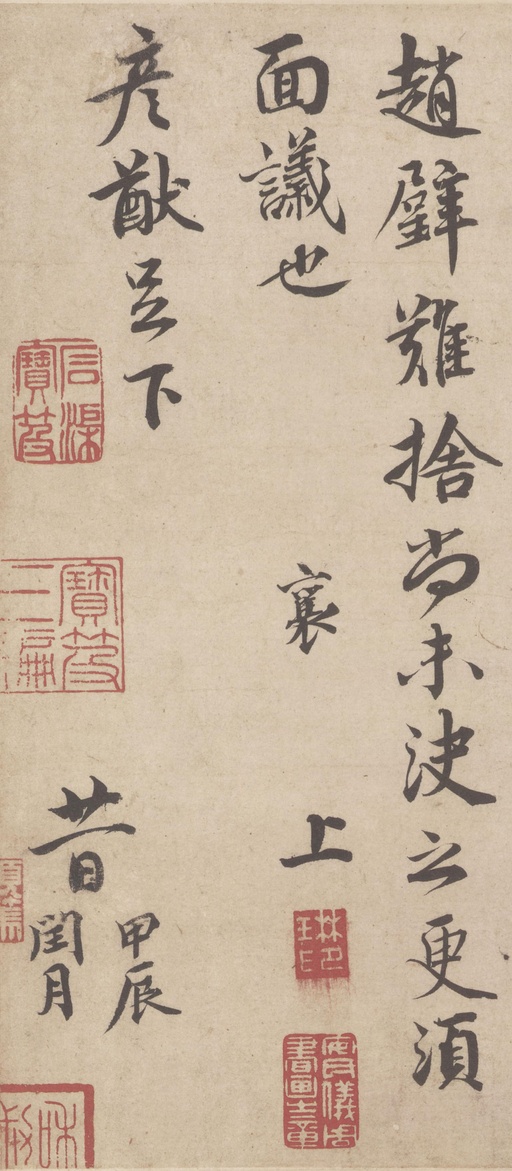 趙璧難捨尚未決之更須
面議也
襄
上
彥猷足下
廿一日
甲辰
閏月
石渠寶笈
寶笈三編
安儀周家書畫之章